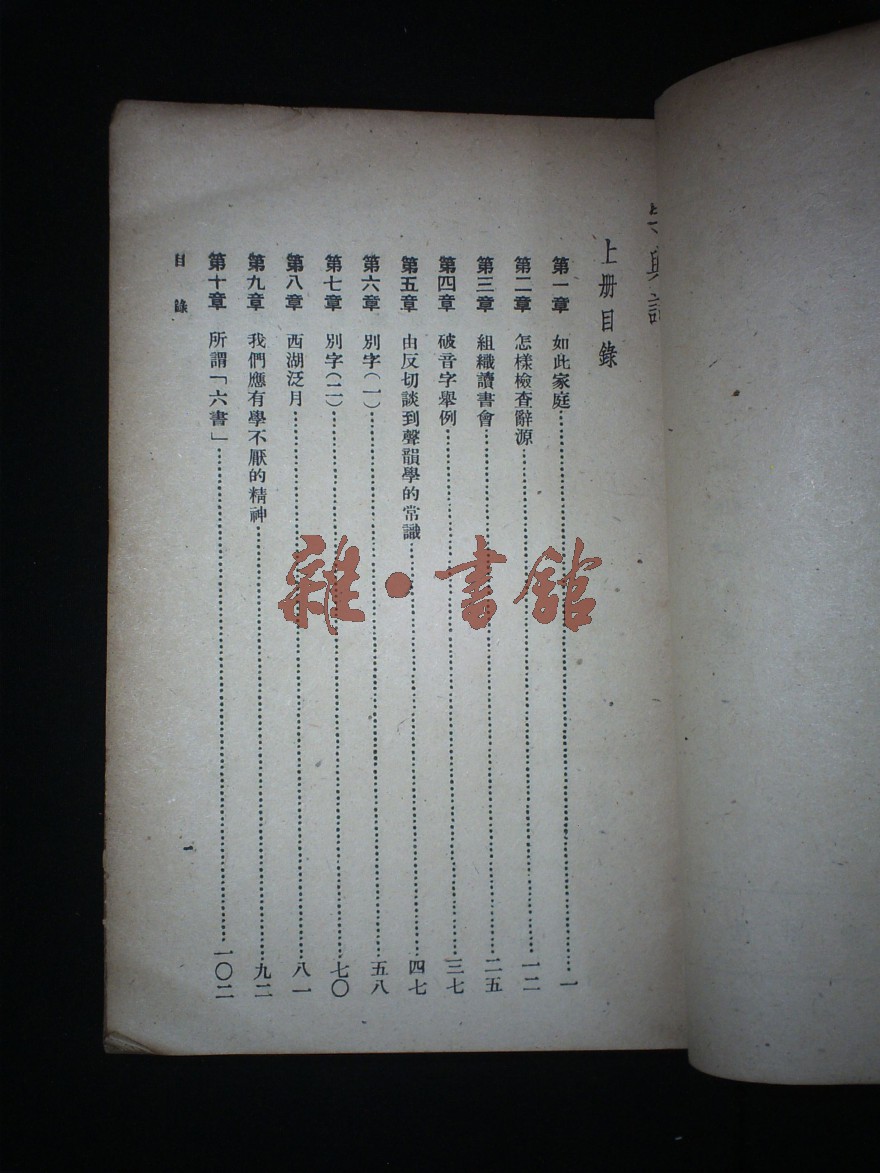 上册目錄
第一章 如此家庭⋯⋯一
第二章 怎樣檢查辭源⋯⋯一二
第三章 組織讀書會⋯⋯二五
第四章 破音字舉例⋯⋯三七
第五章 由反切談到聲韻學的常識⋯⋯四七
第六章 別字(一)⋯⋯五八
第七章 別字(二)⋯⋯七〇
第八章 西湖泛月⋯⋯八一
第九章 我們應有學不厭的精神⋯⋯九二
第十章 所謂「六書」⋯⋯一〇二
目錄
一
雜·書館